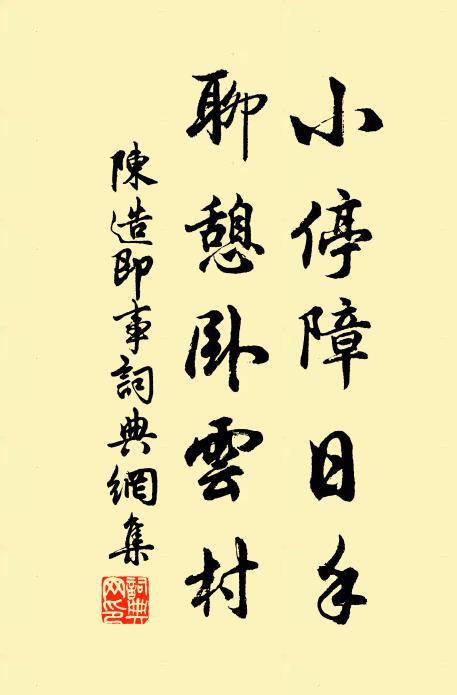 小停障日手
聊憩卧雲村
陳造即事詞典網集